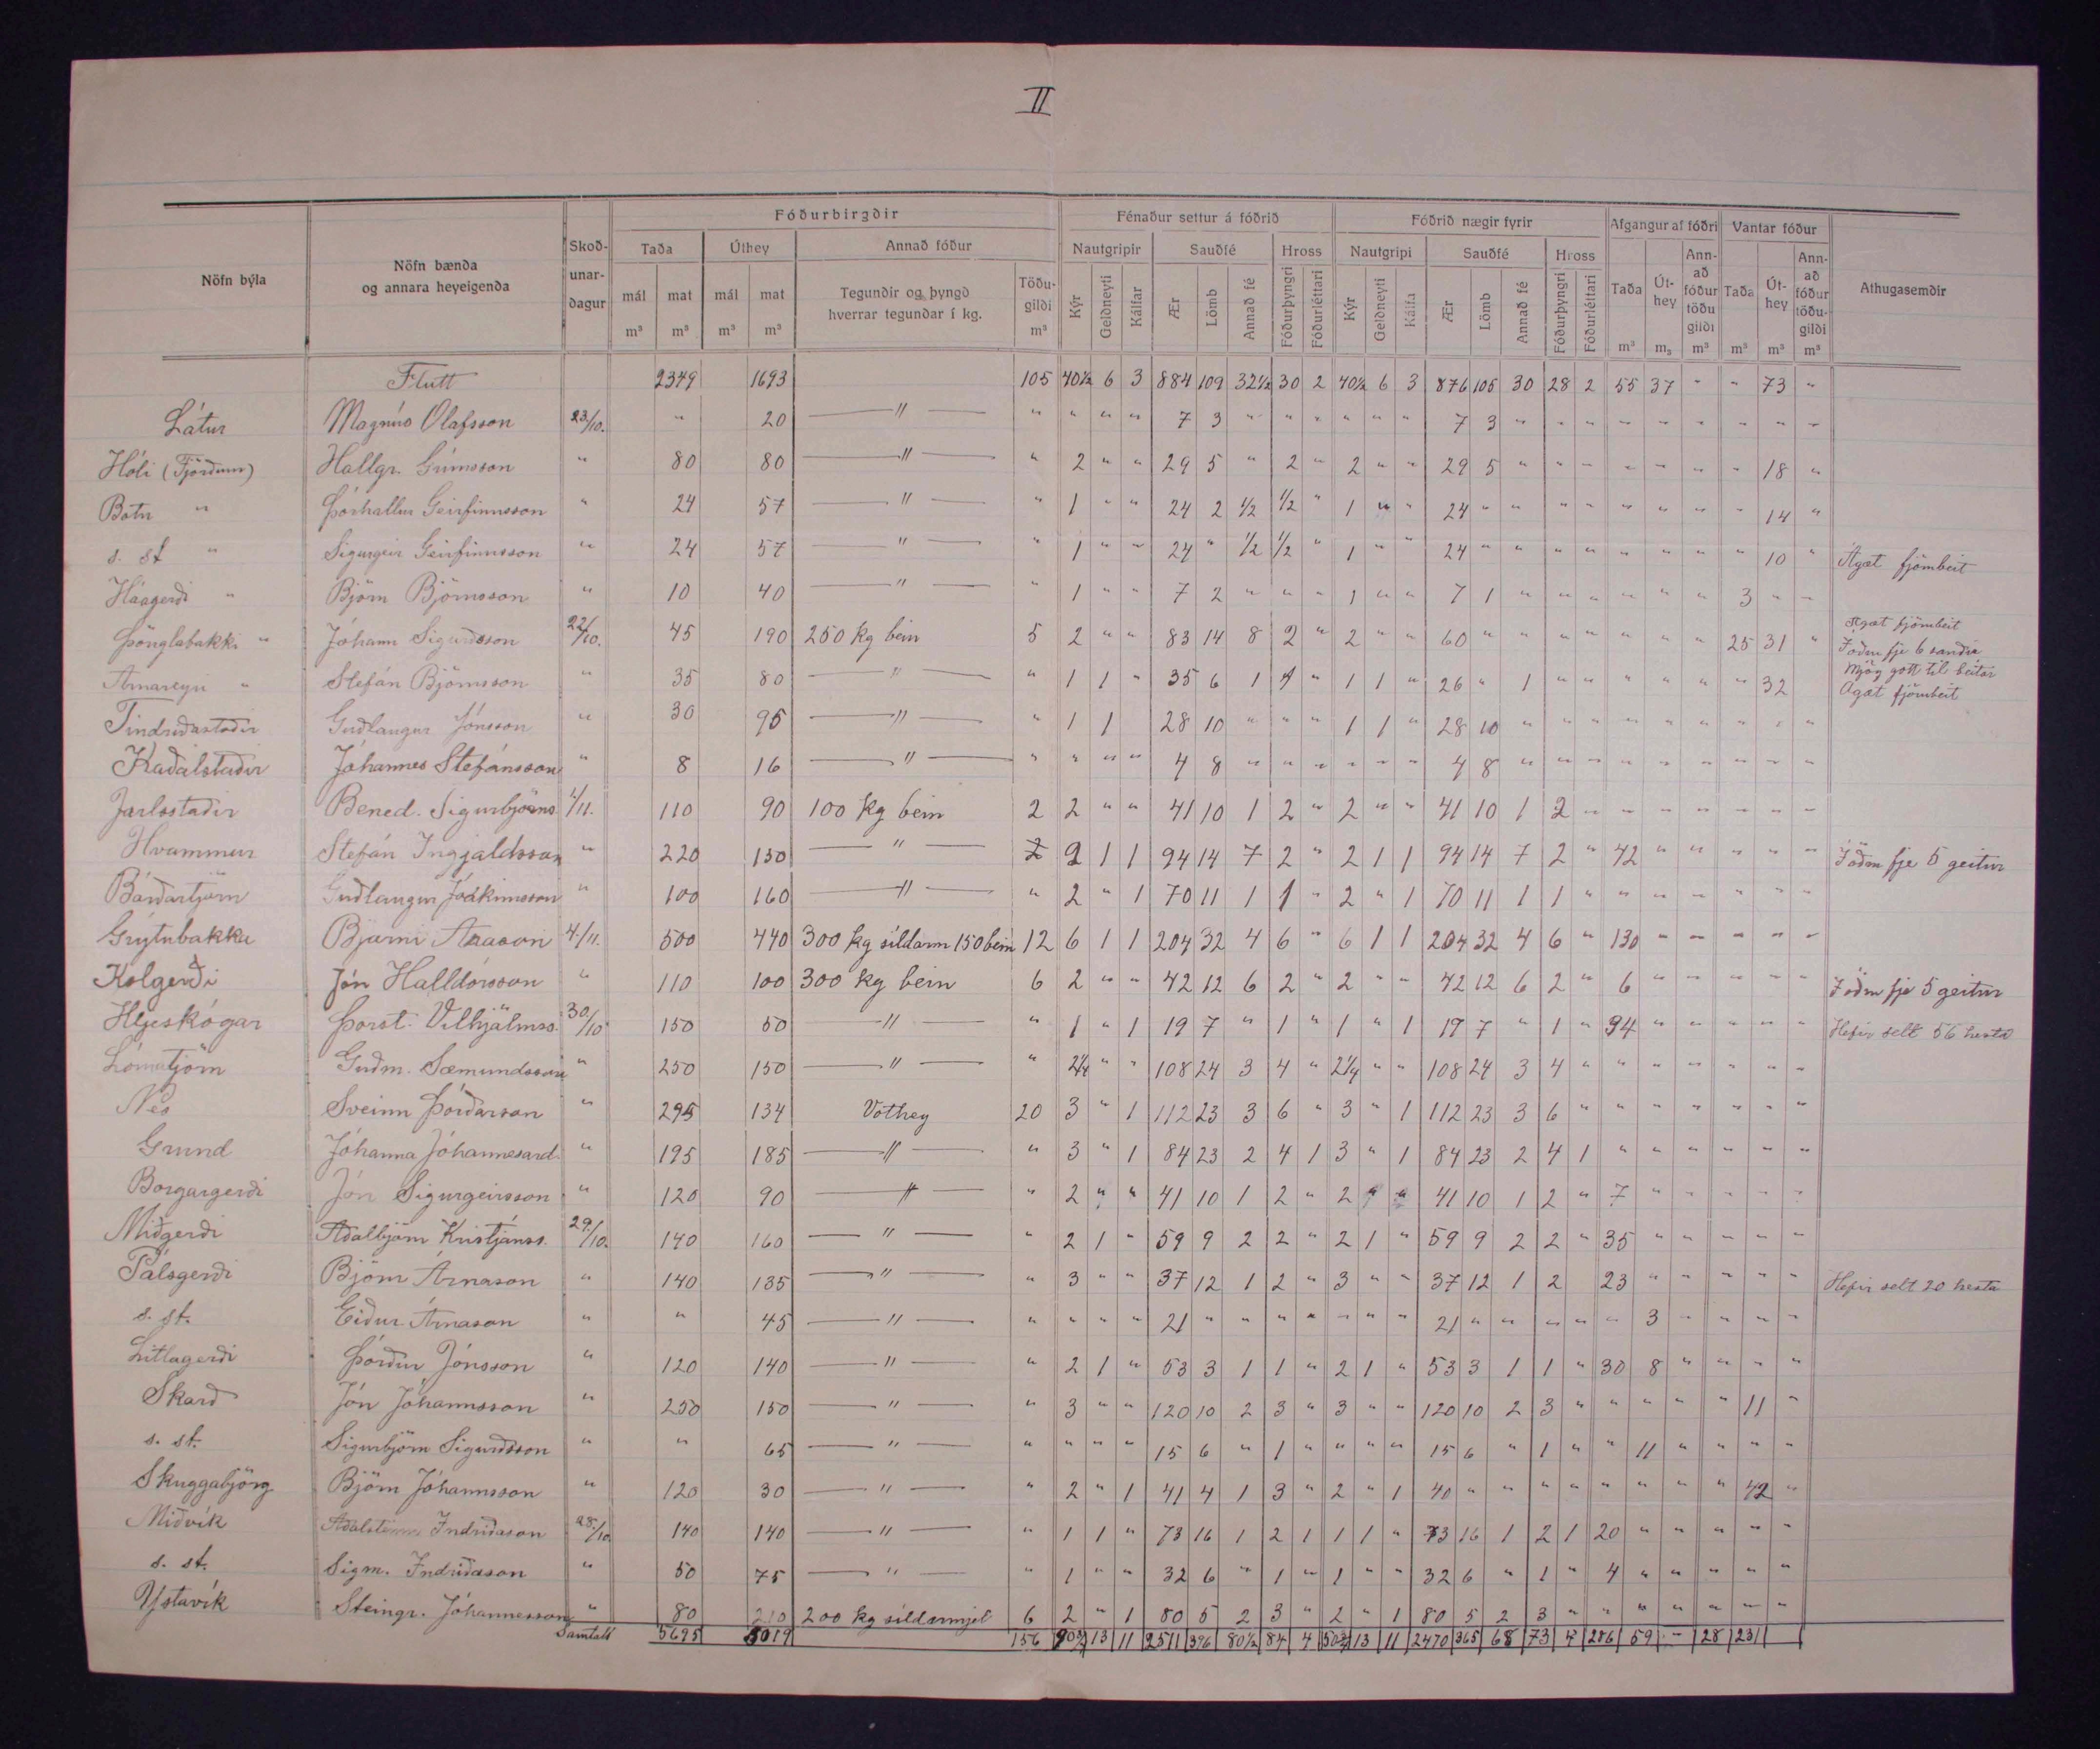 II
Nöfn býla | Nöfn bænda og annara heyeigenda | Skoðunardagur | Fóðurbirgðir | Fénaður settur á fóðrið | Fóðrið nægir fyrir | Afgangur af fóðri | Vantar fóður | Athugasemdir
Taða | Úthey | Annað fóður | Nautgripir | Sauðfé | Hross | Nautgripi | Sauðfé | Hross
mál m³ | mat m³ | mál m³ | mat m³ | Tegundir og þyngd hverrar tegundar í kg. | Töðugildi m³ | Kýr | Geldneyti | Kálfar | Ær | Lömb | Annað fé | Fóðurþyngri | Fóðurléttari | Kýr | Geldneyti | Kálfa | Ær | Lömb | Annað fé | Fóðurþyngri | Fóðurléttari | Taða m³ | Úthey m³ | Annað fóður töðugildi m³ | Taða m³ | Úthey m³ | Annað fóður töðugildi m³
Flutt 2349 1693 105 40½ 6 3 884 109 32½ 30 2 40½ 6 3 876 105 30 28 2 55 37 " " 73 "
Látur Magnús Olafsson 23/10. " 20 " " " " " 7 3 " " " " " " 7 3 " " " " " " " " "
Hóli (Fjörðum) Hallgr. Grímsson " 80 80 " " 2 " " 29 5 " 2 " 2 " " 29 5 " " " " " " " 18 "
Botn " Þórhallur Geirfinnsson " 24 57 " " 1 " " 24 2 ½ ½ " 1 " " 24 " " " " " " " " 14 "
s. st " Sigurgeir Geirfinnsson " 24 57 " " 1 " " 24 " ½ ½ " 1 " " 24 " " " " " " " " 10 " Ágæt fjörubeit
Háagerði " Björn Björnsson " 10 40 " " 1 " " 7 2 " " " 1 " " 7 1 " " " " " " 3 " "
Þönglabakki " Jóhann Sigurðsson 22/10. 45 190 250 kg bein 5 2 " " 83 14 8 2 " 2 " " 60 " " " " " " " 25 31 " Ágæt fjörubeit
Stefán Björnsson " 35 80 " " 1 1 " 35 6 1 1 " 1 1 " 26 " 1 " " " " " " 32 Mjög gott til beitar Ágæt fjörubeit
Tindriðastaðir Guðlaugur Jónsson " 30 95 " " 1 1 28 10 " " " 1 1 " 28 10 " " " " " " " " "
Kaðalstaðir Jóhannes Stefánsson " 8 16 " " " " " 4 8 " " " " " " 4 8 " " " " " " " " "
Jarlsstaðir Bened. Sigurbjörns. 1/11. 110 90 100 kg bein 2 2 " " 41 10 1 2 " 2 " " 41 10 1 2 " " " " " " "
Hvammur Stefán Ingjaldsson " 220 130 " 2 1 1 94 14 7 2 " 2 1 1 94 14 7 2 " 42 " " " " " Í öðru fje 5 geitur
Bárðartjörn Guðlaugur Jóakimsson " 100 160 " " 2 " 1 70 11 1 1 " 2 " 1 70 11 1 1 " " " " " " "
Grýtubakka Bjarni Arason 4./11. 500 440 300 kg síldarm 150 bein 12 6 1 1 204 32 4 6 " 6 1 1 204 32 4 6 " 130 " " " " "
Kolgerði Jón Halldórsson " 110 100 300 kg bein 6 2 " " 42 12 6 2 " 2 " " 42 12 6 2 " 6 " " " " " Í öðru fje 5 geitur
Hljeskógar Þorst. Vilhjálmss. 30/10 150 50 " " 1 " 1 19 7 " 1 " 1 " 1 19 7 " 1 " 94 " " " " " Hefir selt 56 hesta
Lómatjörn Guðm. Sæmundsson " 250 150 " " 2¼ " " 108 24 3 4 " 2¼ " " 108 24 3 4 " " " " " " "
Nes Sveinn Þórðarson " 295 134 Vothey 20 3 " 1 112 23 3 6 " 3 " 1 112 23 3 6 " " " " " " "
Grund Jóhanna Jóhannesard. " 195 185 " " 3 " 1 84 23 2 4 1 3 " 1 84 23 2 4 1 " " " " " "
Borgargerði Jón Sigurgeirsson " 120 90 " " 2 " " 41 10 1 2 " 2 " " 41 10 1 2 " 7 " " " " "
Miðgerði Aðalbjörn Kristjánss. 29/10. 140 160 " " 2 1 " 59 9 2 2 " 2 1 " 59 9 2 2 " 35 " " " " "
Pálsgerði Björn Árnason " 140 135 " " 3 " " 37 12 1 2 " 3 " " 37 12 1 2 23 " " " " " Hefir selt 20 hesta
s. st. Eiður Árnason " " 45 " " " " " 21 " " " " " " " 21 " " " " " 3 " " " "
Litlagerði Þórður Jónsson " 120 140 " " 2 1 " 53 3 1 1 " 2 1 " 53 3 1 1 " 30 8 " " " "
Skarð Jón Jóhannsson " 250 150 " " 3 " " 120 10 2 3 " 3 " " 120 10 2 3 " " " " " 11 "
s. st. Sigurbjörn Sigurðsson " " 65 " " " " " 15 6 " 1 " " " " 15 6 " 1 " " 11 " " " "
Skuggabjörg Björn Jóhannsson " 120 30 " " 2 " 1 41 4 1 3 " 2 " 1 40 " " " " " " " " 42 "
Miðvík Aðalsteinn Indriðason 28/10 140 140 " " 1 1 " 73 16 1 2 1 1 1 " 73 16 1 2 1 20 " " " " "
s. st. Sigm. Indriðason " 50 75 " " 1 " " 32 6 " 1 " 1 " " 32 6 " 1 " 4 " " " " "
Ystavík Steingr. Jóhannesson " 80 210 200 kg síldarmjel 6 2 " 1 80 5 2 3 " 2 " 1 80 5 2 3 " " " " " " "
Samtals 5695 5019 156 90¾ 13 11 2511 396 80½ 84 4 13 11 2470 365 68 73 4 286 59 - 28 231